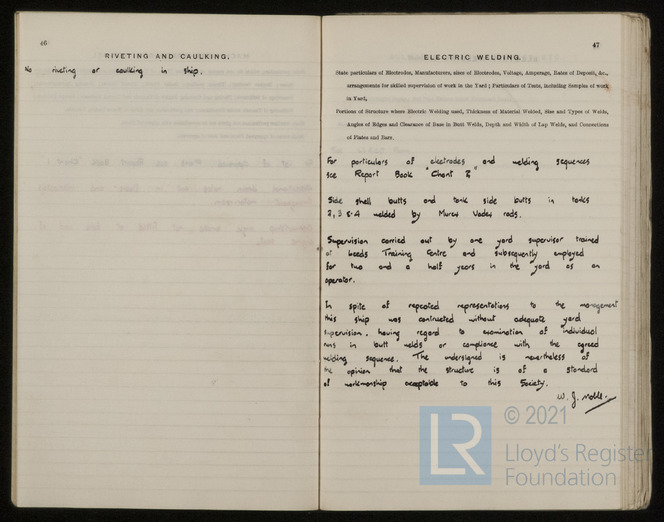 46
RIVETING AND CAULKING.
No riveting or caulking in ship.
47
ELECTRIC WELDING.
State particulars of Electrodes, Manufacturers, sizes of Electrodes, Voltage, Amperage, Rates of Deposit, &c.,
arrangements for skilled supervision of work in the Yard; Particulars of Tests, including Samples of work
in Yard,
Portions of Structure where Electric Welding used, Thickness of Material Welded, Size and Types of Welds,
Angles of Edges and Clearance of Base in Butt Welds, Depth and Width of Lap Welds, and Connections
of Plates and Bars.
For particulars of electrodes and welding sequences
see Report Book "
Side shell butts and tank side butts in tanks
2, 3 & 4 welded by Murex Vodex rods.
Supervision carried out by one yard supervisor trained
at Leeds Training Centre and subsequently employed
for two and a half years in the yard as an
operator.
In spite of repeated representations to the management
this ship was contructed without adequate yard
supervision, having regard to examination of individual
runs in butt welds or compliance with the agreed
welding sequence. The undersigned is nevertheless of
the opinion that the structure is of a standard
of workmanship acceptable to this Society.
W. J. Noble.
LR
© 2021
Lloyd's Register
Foundation